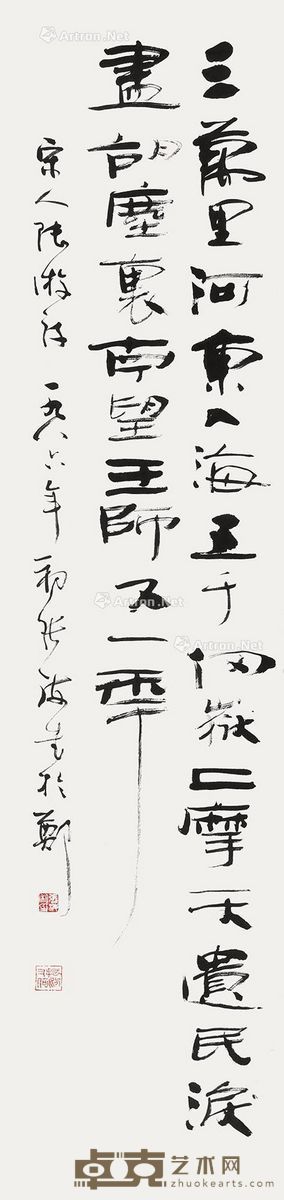 三萬里河東入海五千仞嶽上摩天遺民淚
盡胡塵裏南望王師又一年
宋人陸游詩 一九八六年初張海書於鄭
Artron.Net
卓克艺术网
zhuokearts.com